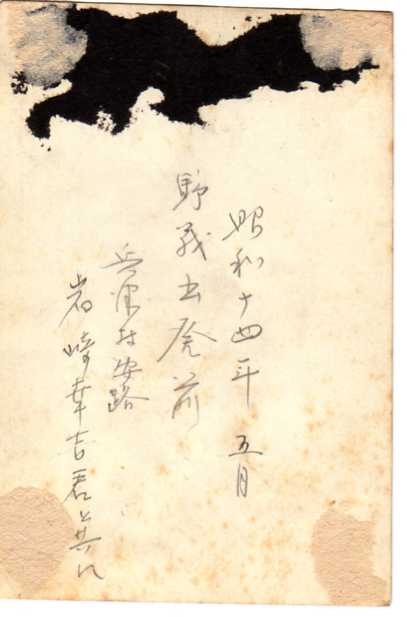 昭和十四年 五月
野戦出発前
兵庫村安路
岩崎幸吉君と共に